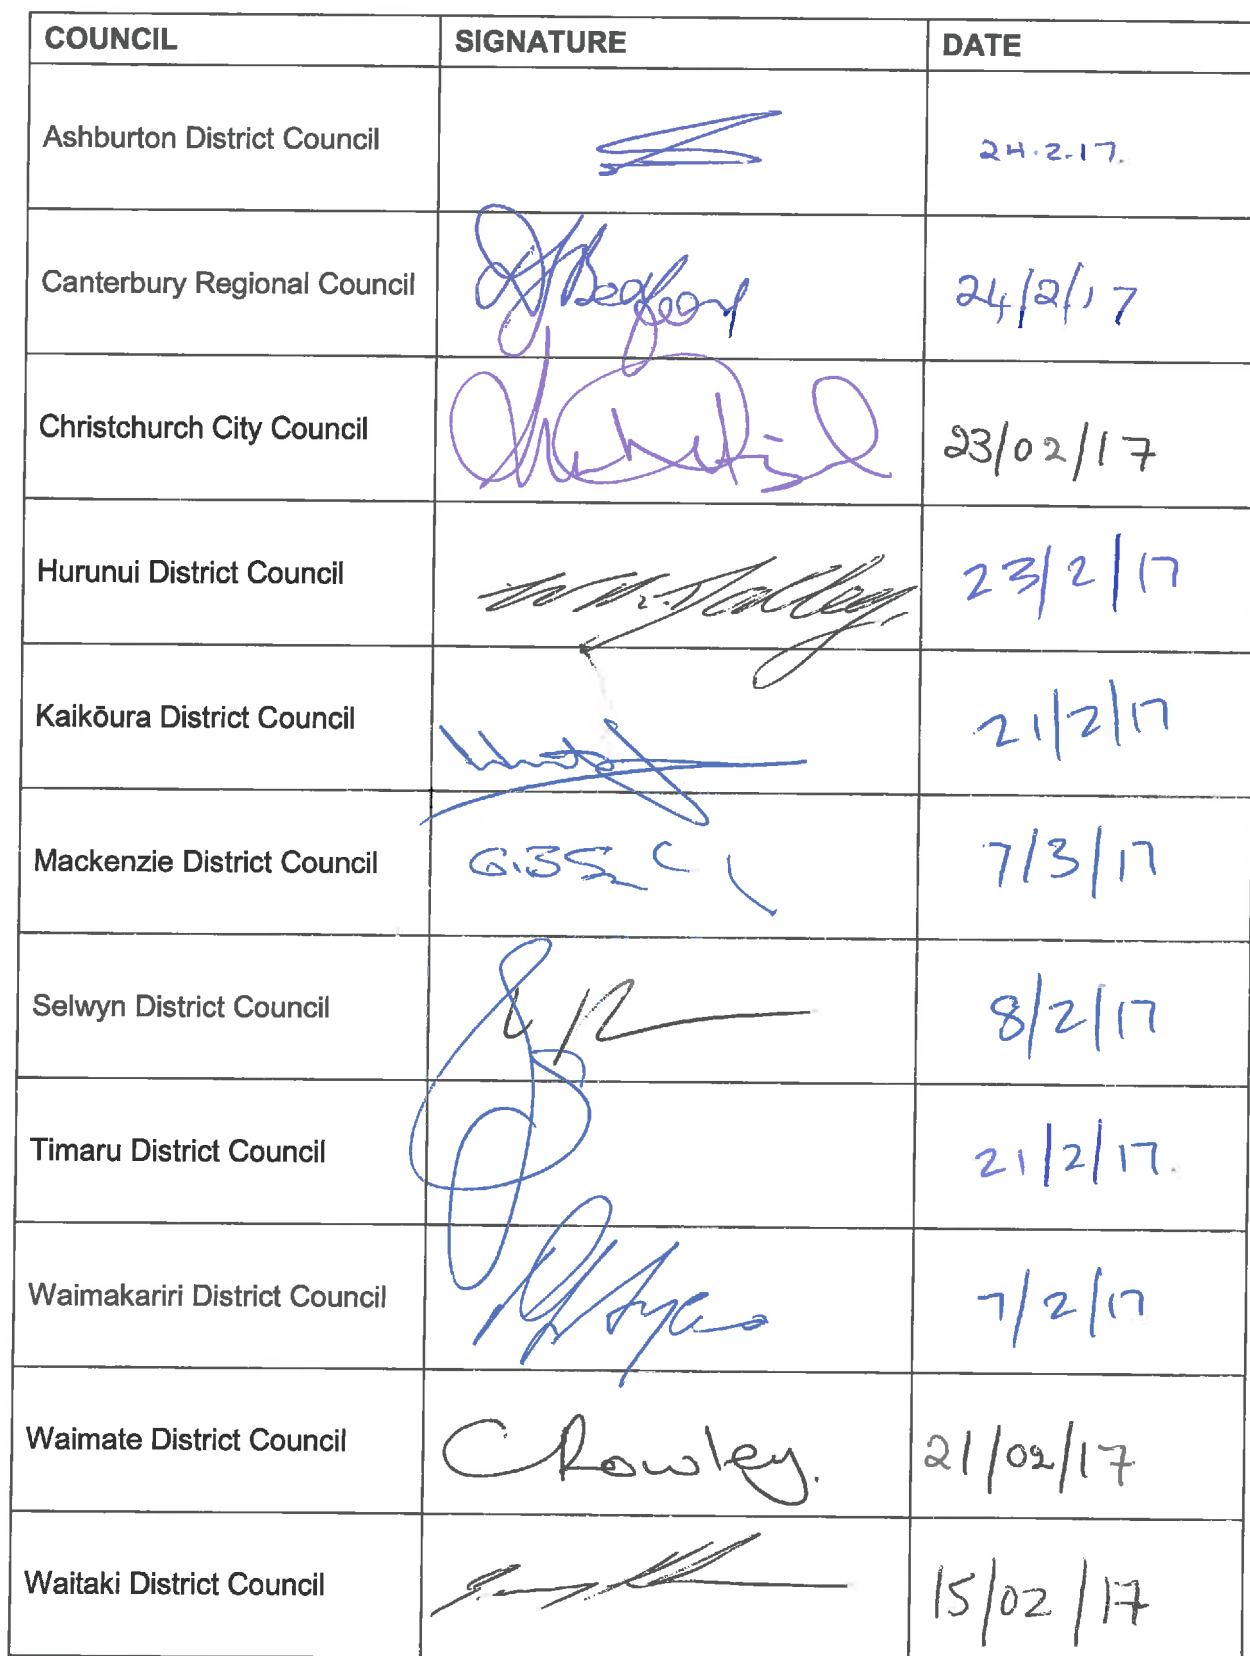 COUNCIL SIGNATURE DATE
Ashburton District Council 24.2.17.
Canterbury Regional Council 24/2/17
Christchurch City Council 23/02/17
Hurunui District Council 23/2/17
Kaikōura District Council 21/2/17
Mackenzie District Council 7/3/17
Selwyn District Council 8/2/17
Timaru District Council 21/2/17.
Waimakariri District Council 7/2/17
Waimate District Council CRowley. 21/02/17
Waitaki District Council 15/02/17